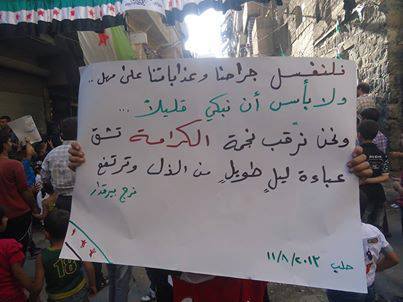 فلنغسل جراحنا وعذاباتنا على مهل ..
ولا بأس أن نبكي قليلاً ...
ونحن نرقب نجمة الكرامة تشق
عباءة ليلٍ طويلٍ من الذل وترتفع
فرج بيرقدار
حلب
١١/٨/٢٠١٢